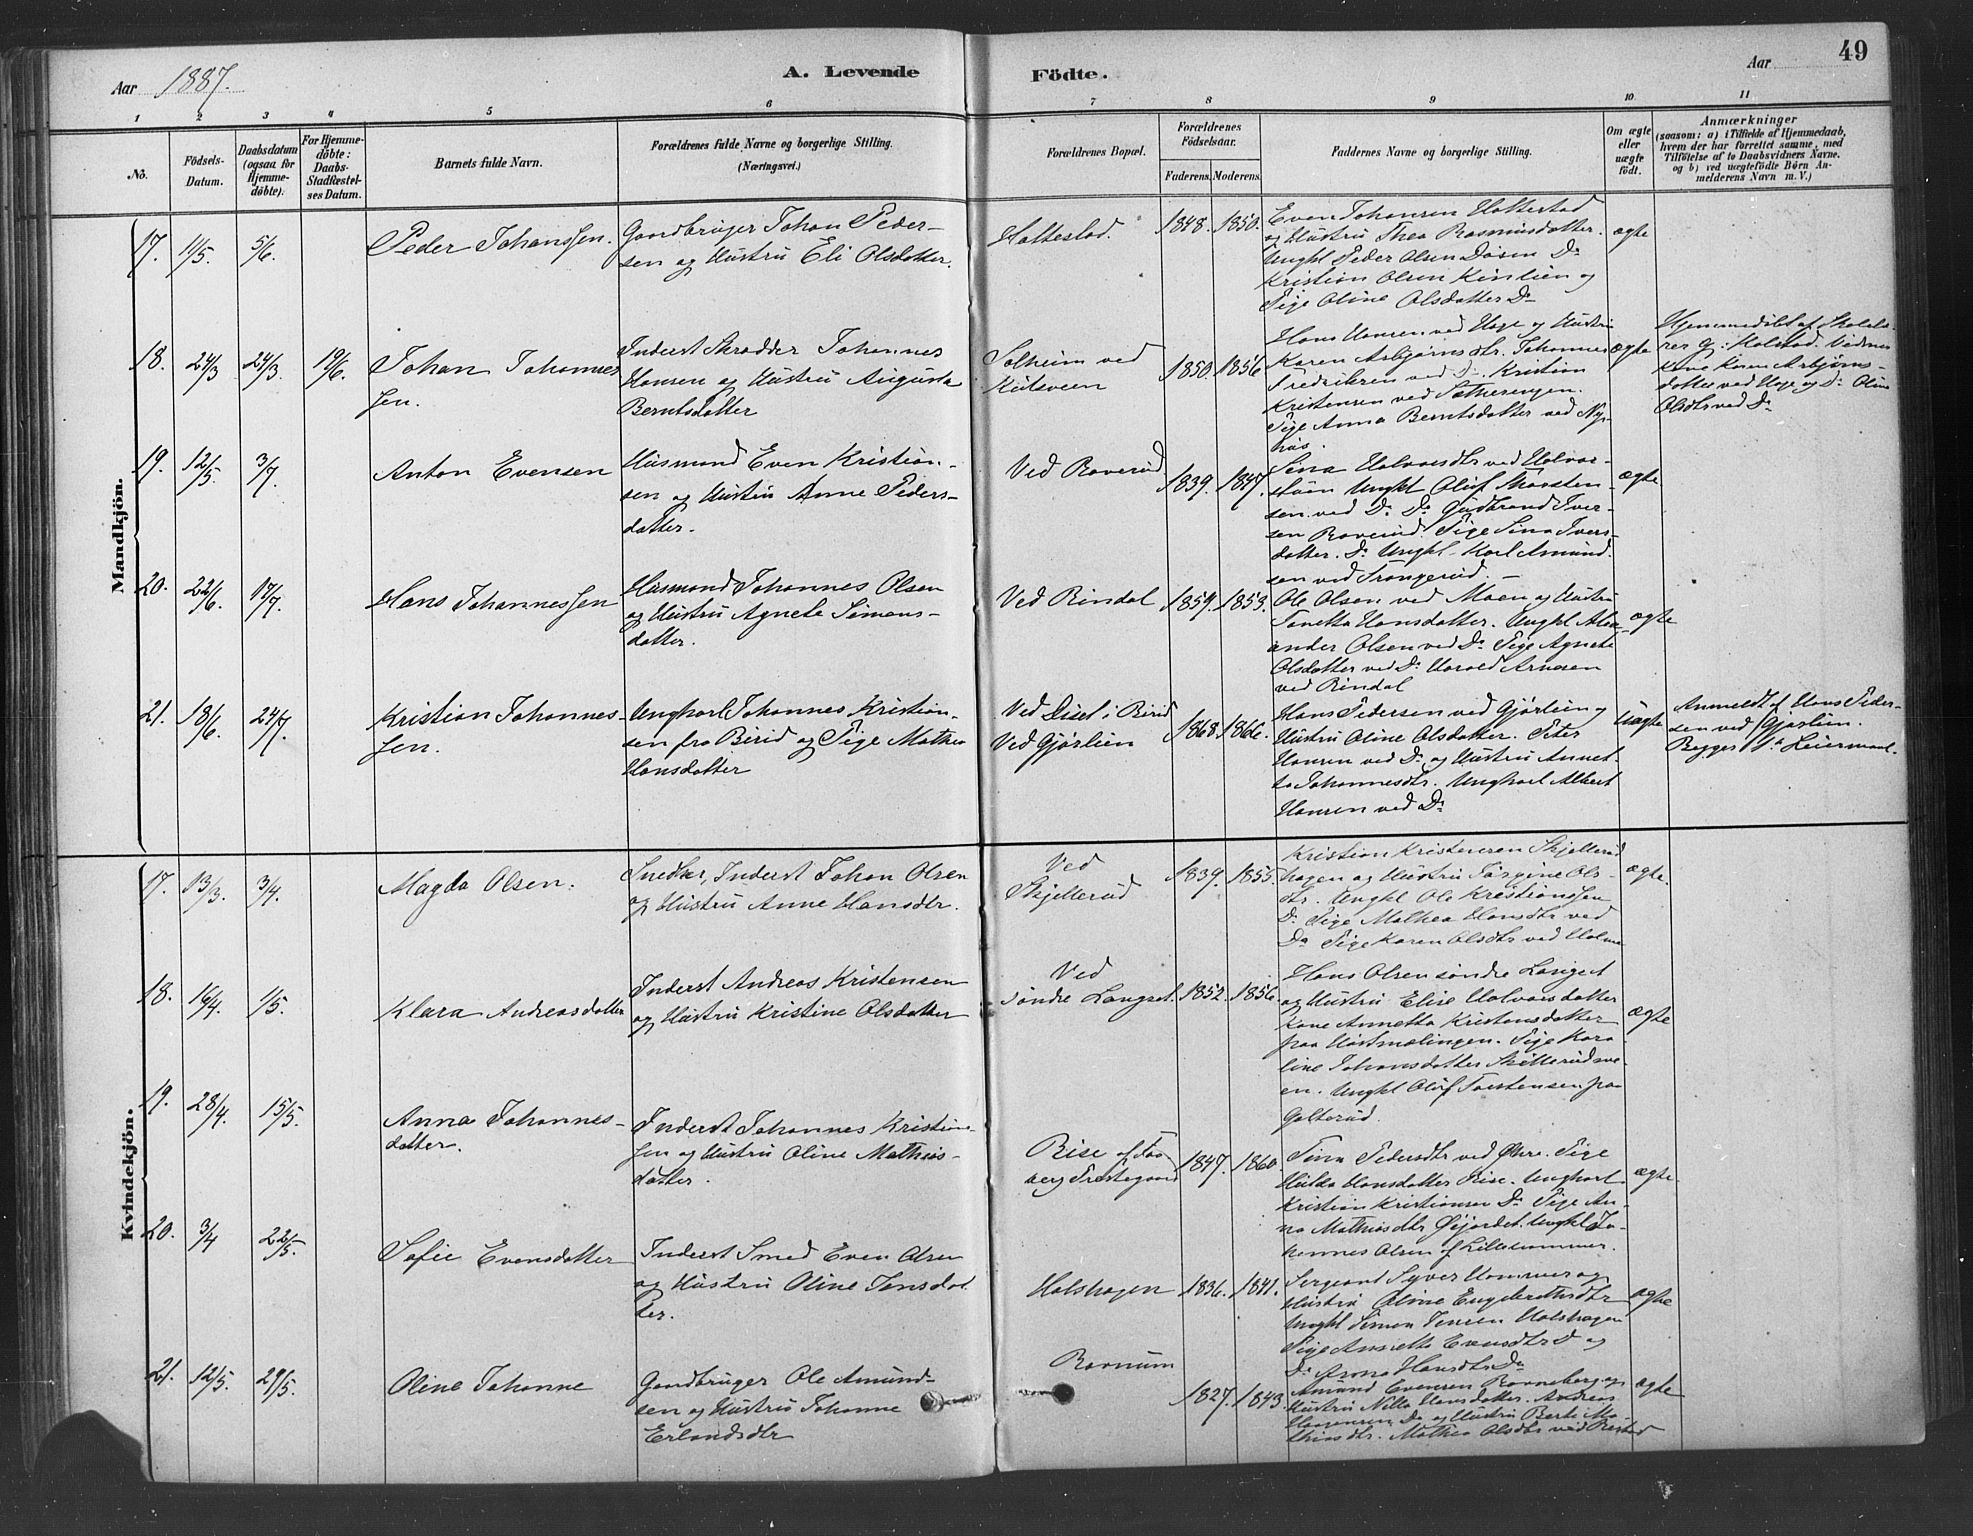 Aar 1887.
A. Levende
Födte.
Aar
49
1 2 3 4 5 6 7 8 9 10 11
No.
Födsels-Datum.
Daabsdatum (ogsaa for Hjemmedöbte).
For Hjemmedöbte: Daabs-Stadfæstelses Datum.
Barnets fulde Navn.
Forældrenes fulde Navne og borgerlige Stilling. (Næringsvei.)
Forældrenes Bopæl.
Forældrenes Födselsaar.
Faderens. Moderens.
Faddernes Navne og borgerlige Stilling.
Om ægte eller uægte födt.
Anmærkninger
(saasom: a) i Tilfælde af Hjemmedaab, hvem der har forrettet samme, med Tilföielse af to Daabsvidners Navne, og b) ved uægtefödte Börn Anmelderens Navn m. V.)
Mandkjön.
17. 11/5. 5/6.
Peder Johanssen.
Gaardbruger Johan Peder-
sen og Hustru Eli Olsdatter.
Hattestad.
1848. 1850.
Even Johansen Hattestad
og Hustru Thea Rasmusdatter.
Unghl Peder Olsen Dösen Do
Kristian Olsen Kinlien og
Pige Oline Olsdatter Do
ægte
18. 24/3 24/3. 19/6.
Johan Johannes
sen.
Inderst Skrædder Johannes
Hansen og Hustru Augusta
Berntsdatter
Solheim ved
1850. 1856
Hans Hansen ved Hage og Hustru
Karen Asbjørnsdtr. Johannes
Fredriksen ved Do. Kristian
Kristensen ved Sætherengen.
Pige Anna Berntsdatter ved Ny-
hus.
ægte
Hjemmedöbt af Skolelæ-
rer G. Kolstad. Vidner
Kone Karen Asbjørns-
datter ved Hage og Do Oline
Olsdtr ved Do
19. 12/5. 3/7
Anton Evensen
Husmand Even Kristian-
sen og Hustru Anne Peders-
datter.
Ved Roverud.
1839. 1847.
Sina Halvorsdtr ved Halvor-
stuen Unghl Oluf Morsten-
sen ved Do. Do Gudbrand Iver-
sen Roverud. Pige Sina Ivers-
datter. Do Unghl. Karl Amund.
sen ved Trangerud.
ægte
20. 22/6. 17/7.
Hans Johannessen
Husmand Johannes Olsen
og Hustru Agnete Simens-
datter.
Ved Rindal
1859. 1853.
Ole Olsen ved Moen og Hustru
Janetta Hansdatter. Unghl Alex-
ander Olsen ved Do Pige Agnete
Olsdatter ved Do Harald Arnesen
ved Rindal
ægte
21. 18/6. 24/7.
Kristian Johannes-
sen.
Ungkarl Johannes Kristian-
sen fra Birid og Pige Mathea
Hansdatter
Ved Disel i Birid
Ved Gjørlien
1868. 1866.
Hans Pedersen ved Gjørlien og
Hustru Oline Olsdatter. Peter
Hansen ved Do og Hustru Annet-
ta Johannesdtr. Ungkarl Albert
Hansen ved Do
uægte
Anmeldt af Hans Peder-
sen ved Gjørlien.
Begges 1ste Leiermaal.
Kvindekjön.
17. 13/3. 3/4.
Magda Olsen.
Snedker, Inderst Johan Olsen
og Hustru Anne Hansdtr.
Ved
Skjellerud
1839. 1855.
Kristian Kristensen Skjellerud
hagen og Hustru Jørgine Ols-
dtr. Unghl Ole Kristianssen
Do. Pige Mathea Hansdtr ved
Do Pige Karen Olsdtr ved Holm
ægte.
18. 16/4. 1/5.
Klara Andreasdatter
Inderst Andreas Kristensen
og Hustru Kristine Olsdatter
Ved
søndre Langset.
1852. 1856.
Hans Olsen søndre Langset
og Hustru Elise Halvorsdatter
Kone Annetta Kristensdatter
paa Hustmælingen. Pige Karo
line Johansdatter Skjellerudve-
en. Unghl Oluf Torstensen paa
Galterud.
ægte
19. 28/4. 15/5.
Anna Johannes-
datter.
Inderst Johannes Kristian-
sen og Hustru Oline Mathias-
datter.
Rise af Faa-
berg Præstegaard
1847. 1860.
Tina Pedersdtr ved Øvre. Pige
Hilda Hansdatter Rise. Ungkarl
Kristian Kristiansen Do. Pige An-
na Mathiasdtr Øijordet. Unghl Jo-
hannes Olsen af Lillehammer.
ægte.
20. 3/4 22/5.
Sofie Evensdatter
Inderst Smed Even Olsen
og Hustru Oline Jensdat
ter.
Holshagen
1836. 1841.
Sergeant Syver Hammer og
Hustru Oline Engebretsdtr
Unghl Simen Jensen Holshagen
Pige Annette Evensdtr Do og
Do Anna Hansdtr Do
ægte
21. 12/5. 29/5.
Oline Johanne
Gaardbruger Ole Amund-
sen og Hustru Johanne
Erlandsdtr
Rovnum
1827. 1843.
Amund Evensen Ronneberg og
Hustru Nilla Hansdatter. Andreas
Haagensen Do og Hustru Berte Ma-
thiasdtr. Mathea Olsdtr ved Prestad
ægte